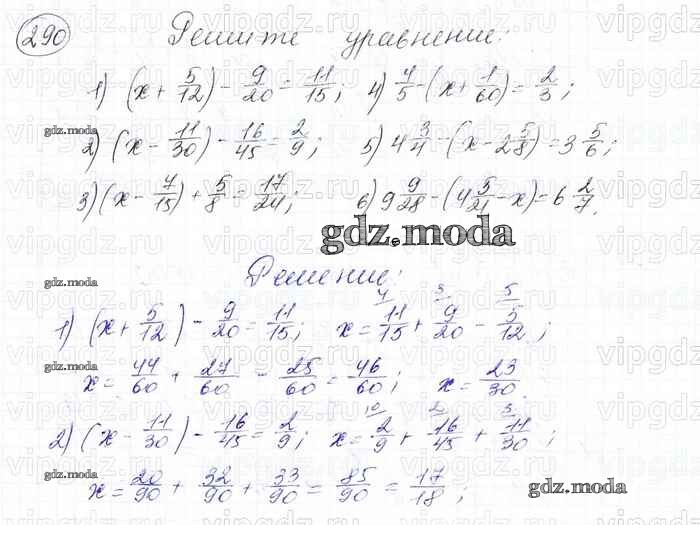 290 Решите уравнение:
1) (x + 5/12) - 9/20 = 11/15; 4) 4/5 - (x + 1/60) = 2/3;
2) (x - 11/30) - 16/45 = 2/9; 5) 4 3/4 - (x - 2 5/8) = 3 5/6;
3) (x - 7/15) + 5/8 = 17/24; 6) 9 9/28 - (4 5/21 - x) = 6 2/7.
gdz.moda
Решение:
1) (x + 5/12) - 9/20 = 11/15; x = 11/15 + 9/20 - 5/12;
x = 44/60 + 27/60 - 25/60 = 46/60; x = 23/30.
2) (x - 11/30) - 16/45 = 2/9; x = 2/9 + 16/45 + 11/30;
x = 20/90 + 32/90 + 33/90 = 85/90 = 17/18;
gdz.moda